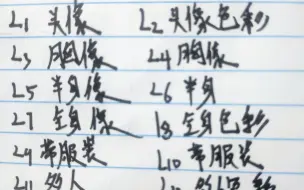 L1 头像 L2 头像色彩
L3 胸像 L4 胸像
L5 半身像 L6 半身
L7 全身像 L8 全身色彩
L9 带服装 L10 带服装
L11